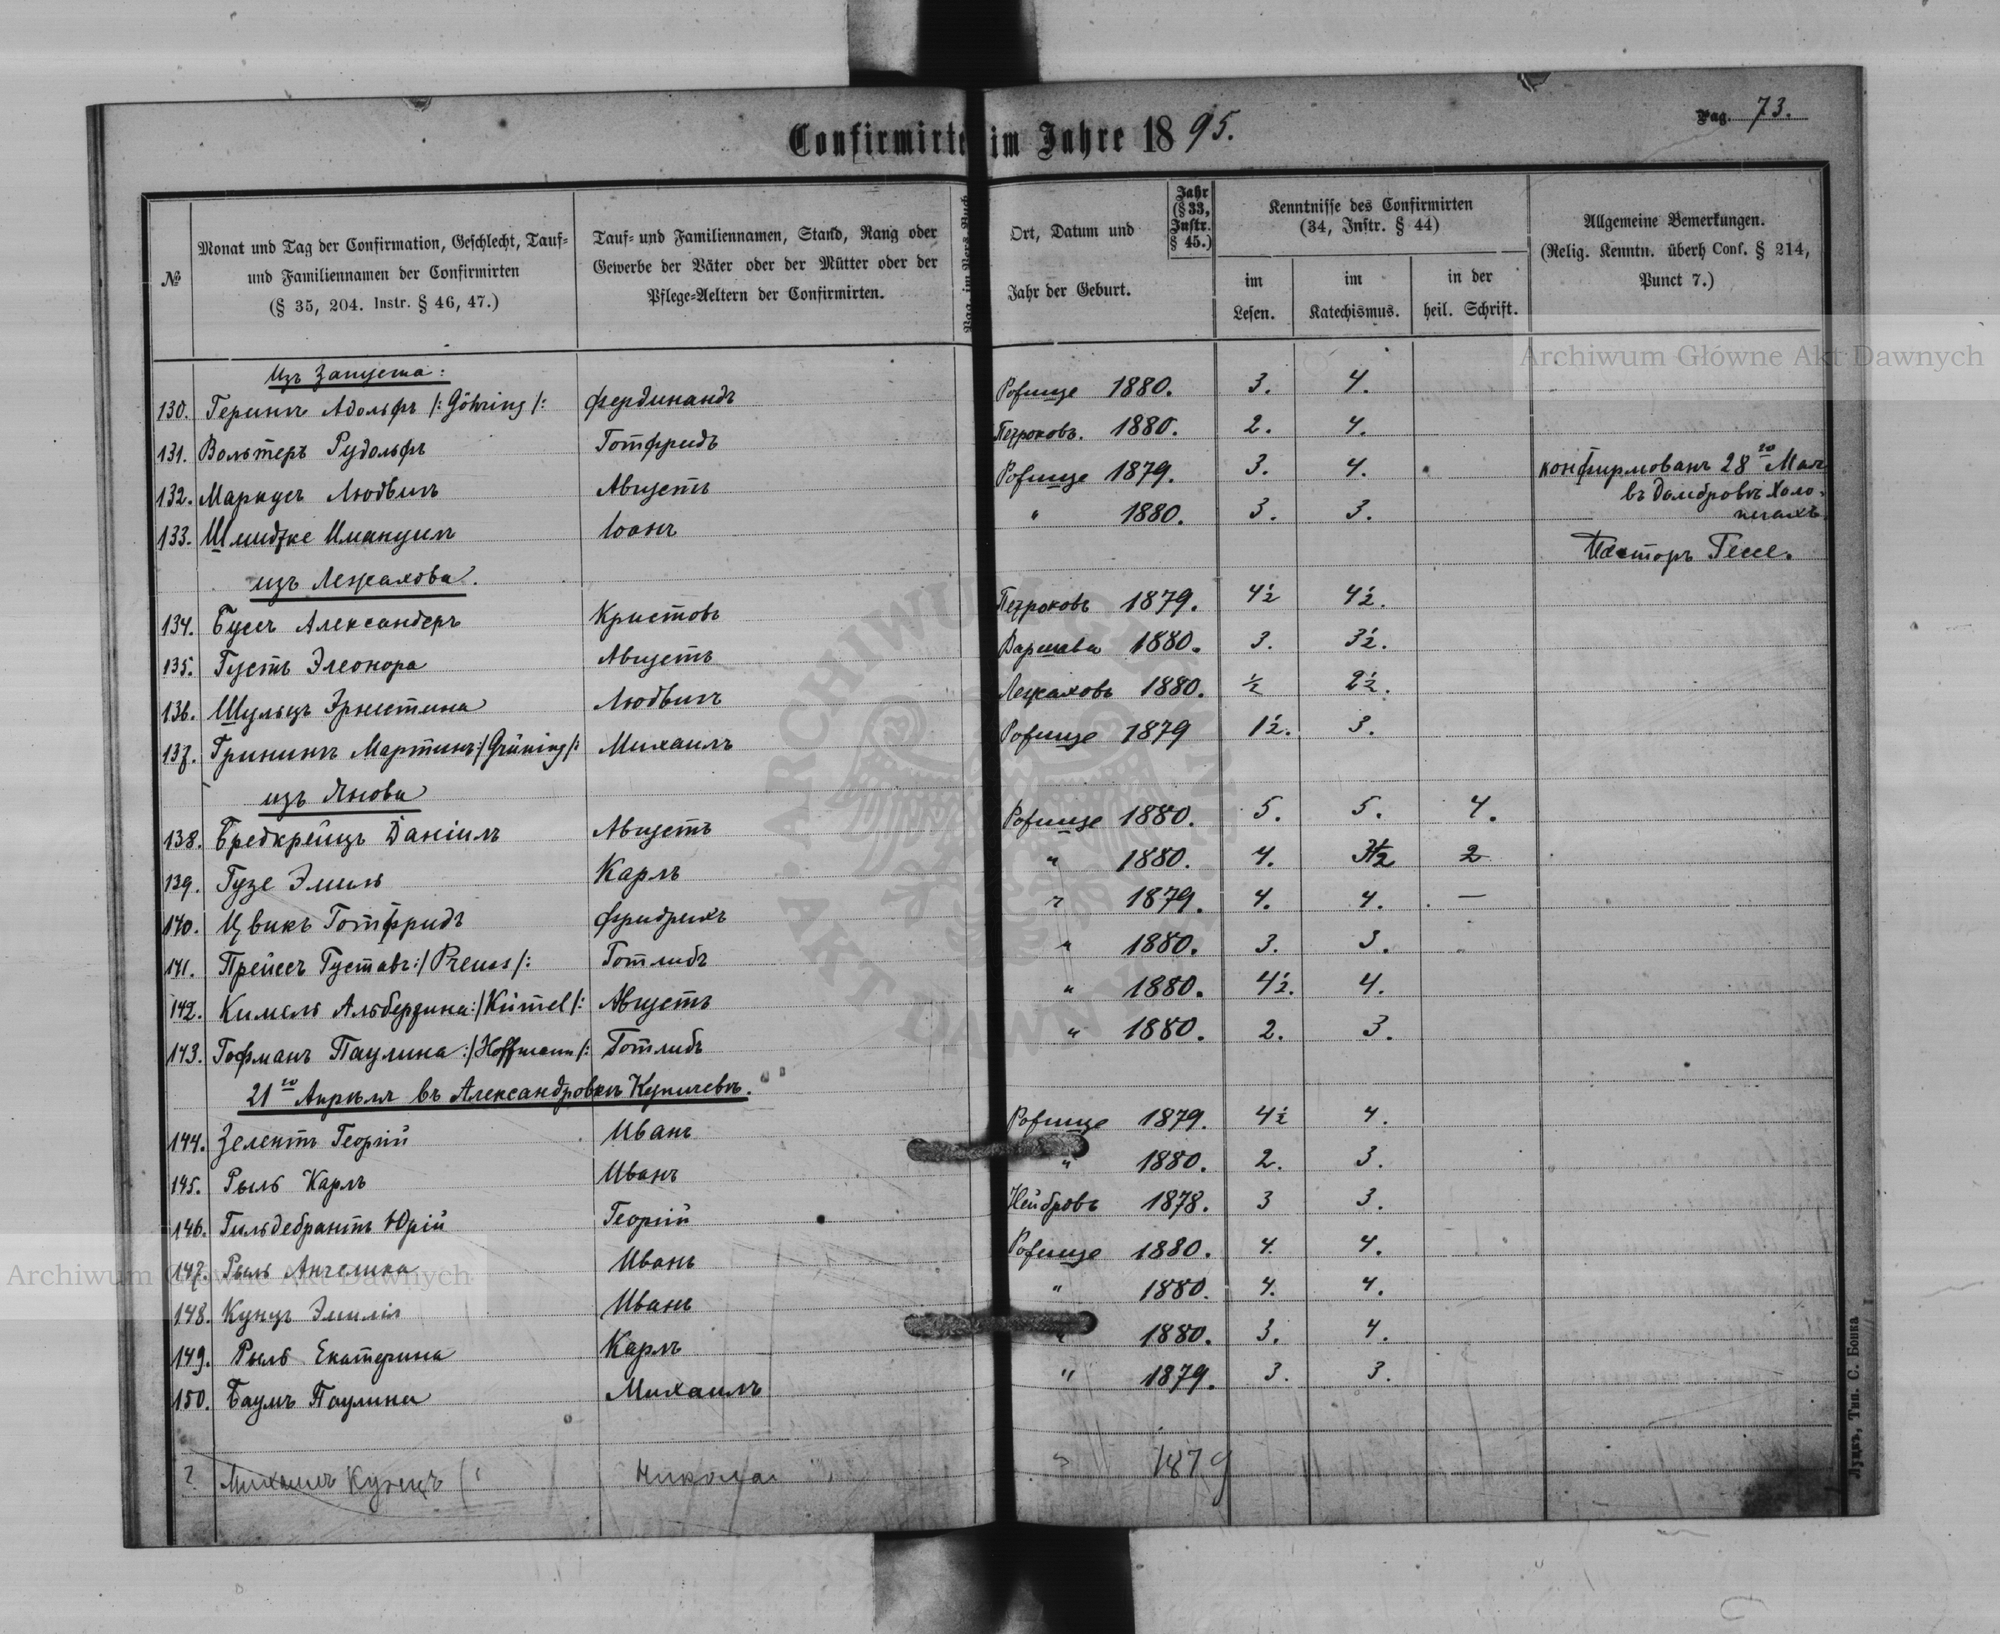 Pag. 73.
Confirmirte im Jahre 1895.
№
Monat und Tag der Confirmation, Geschlecht, Tauf-
und Familiennamen der Confirmirten
(§ 35, 204. Instr. § 46, 47.)
Tauf- und Familiennamen, Stand, Rang oder
Gewerbe der Väter oder der Mütter oder der
Pflege-Aeltern der Confirmirten.
Pag. im Pers. Buch
Ort, Datum und
Jahr der Geburt.
Jahr
(§ 33,
Instr.
§ 45.)
Kenntnisse des Confirmirten
(34, Instr. § 44)
im
Lesen.
im
Katechismus.
in der
heil. Schrift.
Allgemeine Bemerkungen.
(Relig. Kenntn. überh Conf. § 214,
Punct 7.)
Изъ Запуста:
130. Герингъ Адольфъ /: Göhring /: Фердинандъ Рожище 1880. 3. 4.
131. Вольтеръ Рудольфъ Готфридъ Петроковъ. 1880. 2. 4.
132. Маркусъ Людвигъ Августъ Рожище 1879. 3. 4. конфирмованъ 28го Мая
въ Домбровѣ Холо-
133. Шмидтке Имануилъ Іоанъ " 1880. 3. 3.
Пасторъ Гессе.
изъ Лежахова.
134. Буссъ Александеръ Кристовъ Петроковъ 1879. 4½ 4½.
135. Густъ Элеонора Августъ Варшава 1880. 3. 3½.
136. Шульцъ Эрнстина Людвигъ Лежаховъ 1880. ½ 2½.
137. Гринингъ Мартинъ :/Grüning/: Михаилъ Рожище 1879 1½. 3.
изъ Янова
138. Бредкрейцъ Даніилъ Августъ Рожище 1880. 5. 5. 4.
139. Гузе Эмиль Карлъ " 1880. 4. 3½ 2
140. Цвикъ Готфридъ Фридрихъ " 1879. 4. 4. —
141. Прейссъ Густавъ :/Preuss/: Готлибъ " 1880. 3. 3.
142. Кимель Альбертина :/Kümel/: Августъ " 1880. 4½. 4.
143. Гофманъ Паулина :/Hoffmann/: Готлибъ " 1880. 2. 3.
21го Апрѣля въ Александровкѣ Купичевѣ.
144. Зелентъ Георгій Иванъ Рожище 1879. 4½ 4.
145. Рыль Карлъ Иванъ " 1880. 2. 3.
146. Гильдебрантъ Юрій Георгій Нейбровъ 1878. 3 3.
147. Рыль Ангелика Иванъ Рожище 1880. 4. 4.
148. Кунцъ Эмилія Иванъ " 1880. 4. 4.
149. Рыль Екатерина Карлъ " 1880. 3. 4.
150. Баумъ Паулина Михаилъ " 1879. 3. 3.
? Михаилъ Кунцъ Никола " 1879
Луцкъ, Тип. С. Бонка
Archiwum Główne Akt Dawnych
Archiwum Główne Akt Dawnych